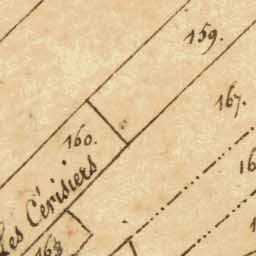 159.
167.
160.
Les Cérisiers
163